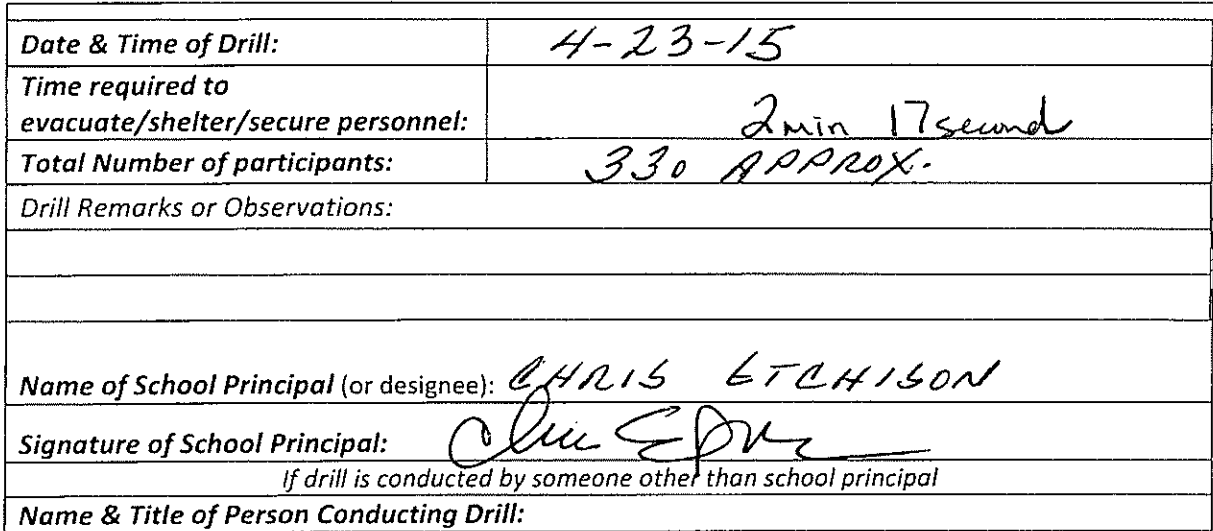 Date & Time of Drill: 4-23-15
Time required to
evacuate/shelter/secure personnel: 2 min 17 second
Total Number of participants: 330 APPROX.
Drill Remarks or Observations:
Name of School Principal (or designee): CHRIS ETCHISON
Signature of School Principal:
If drill is conducted by someone other than school principal
Name & Title of Person Conducting Drill: